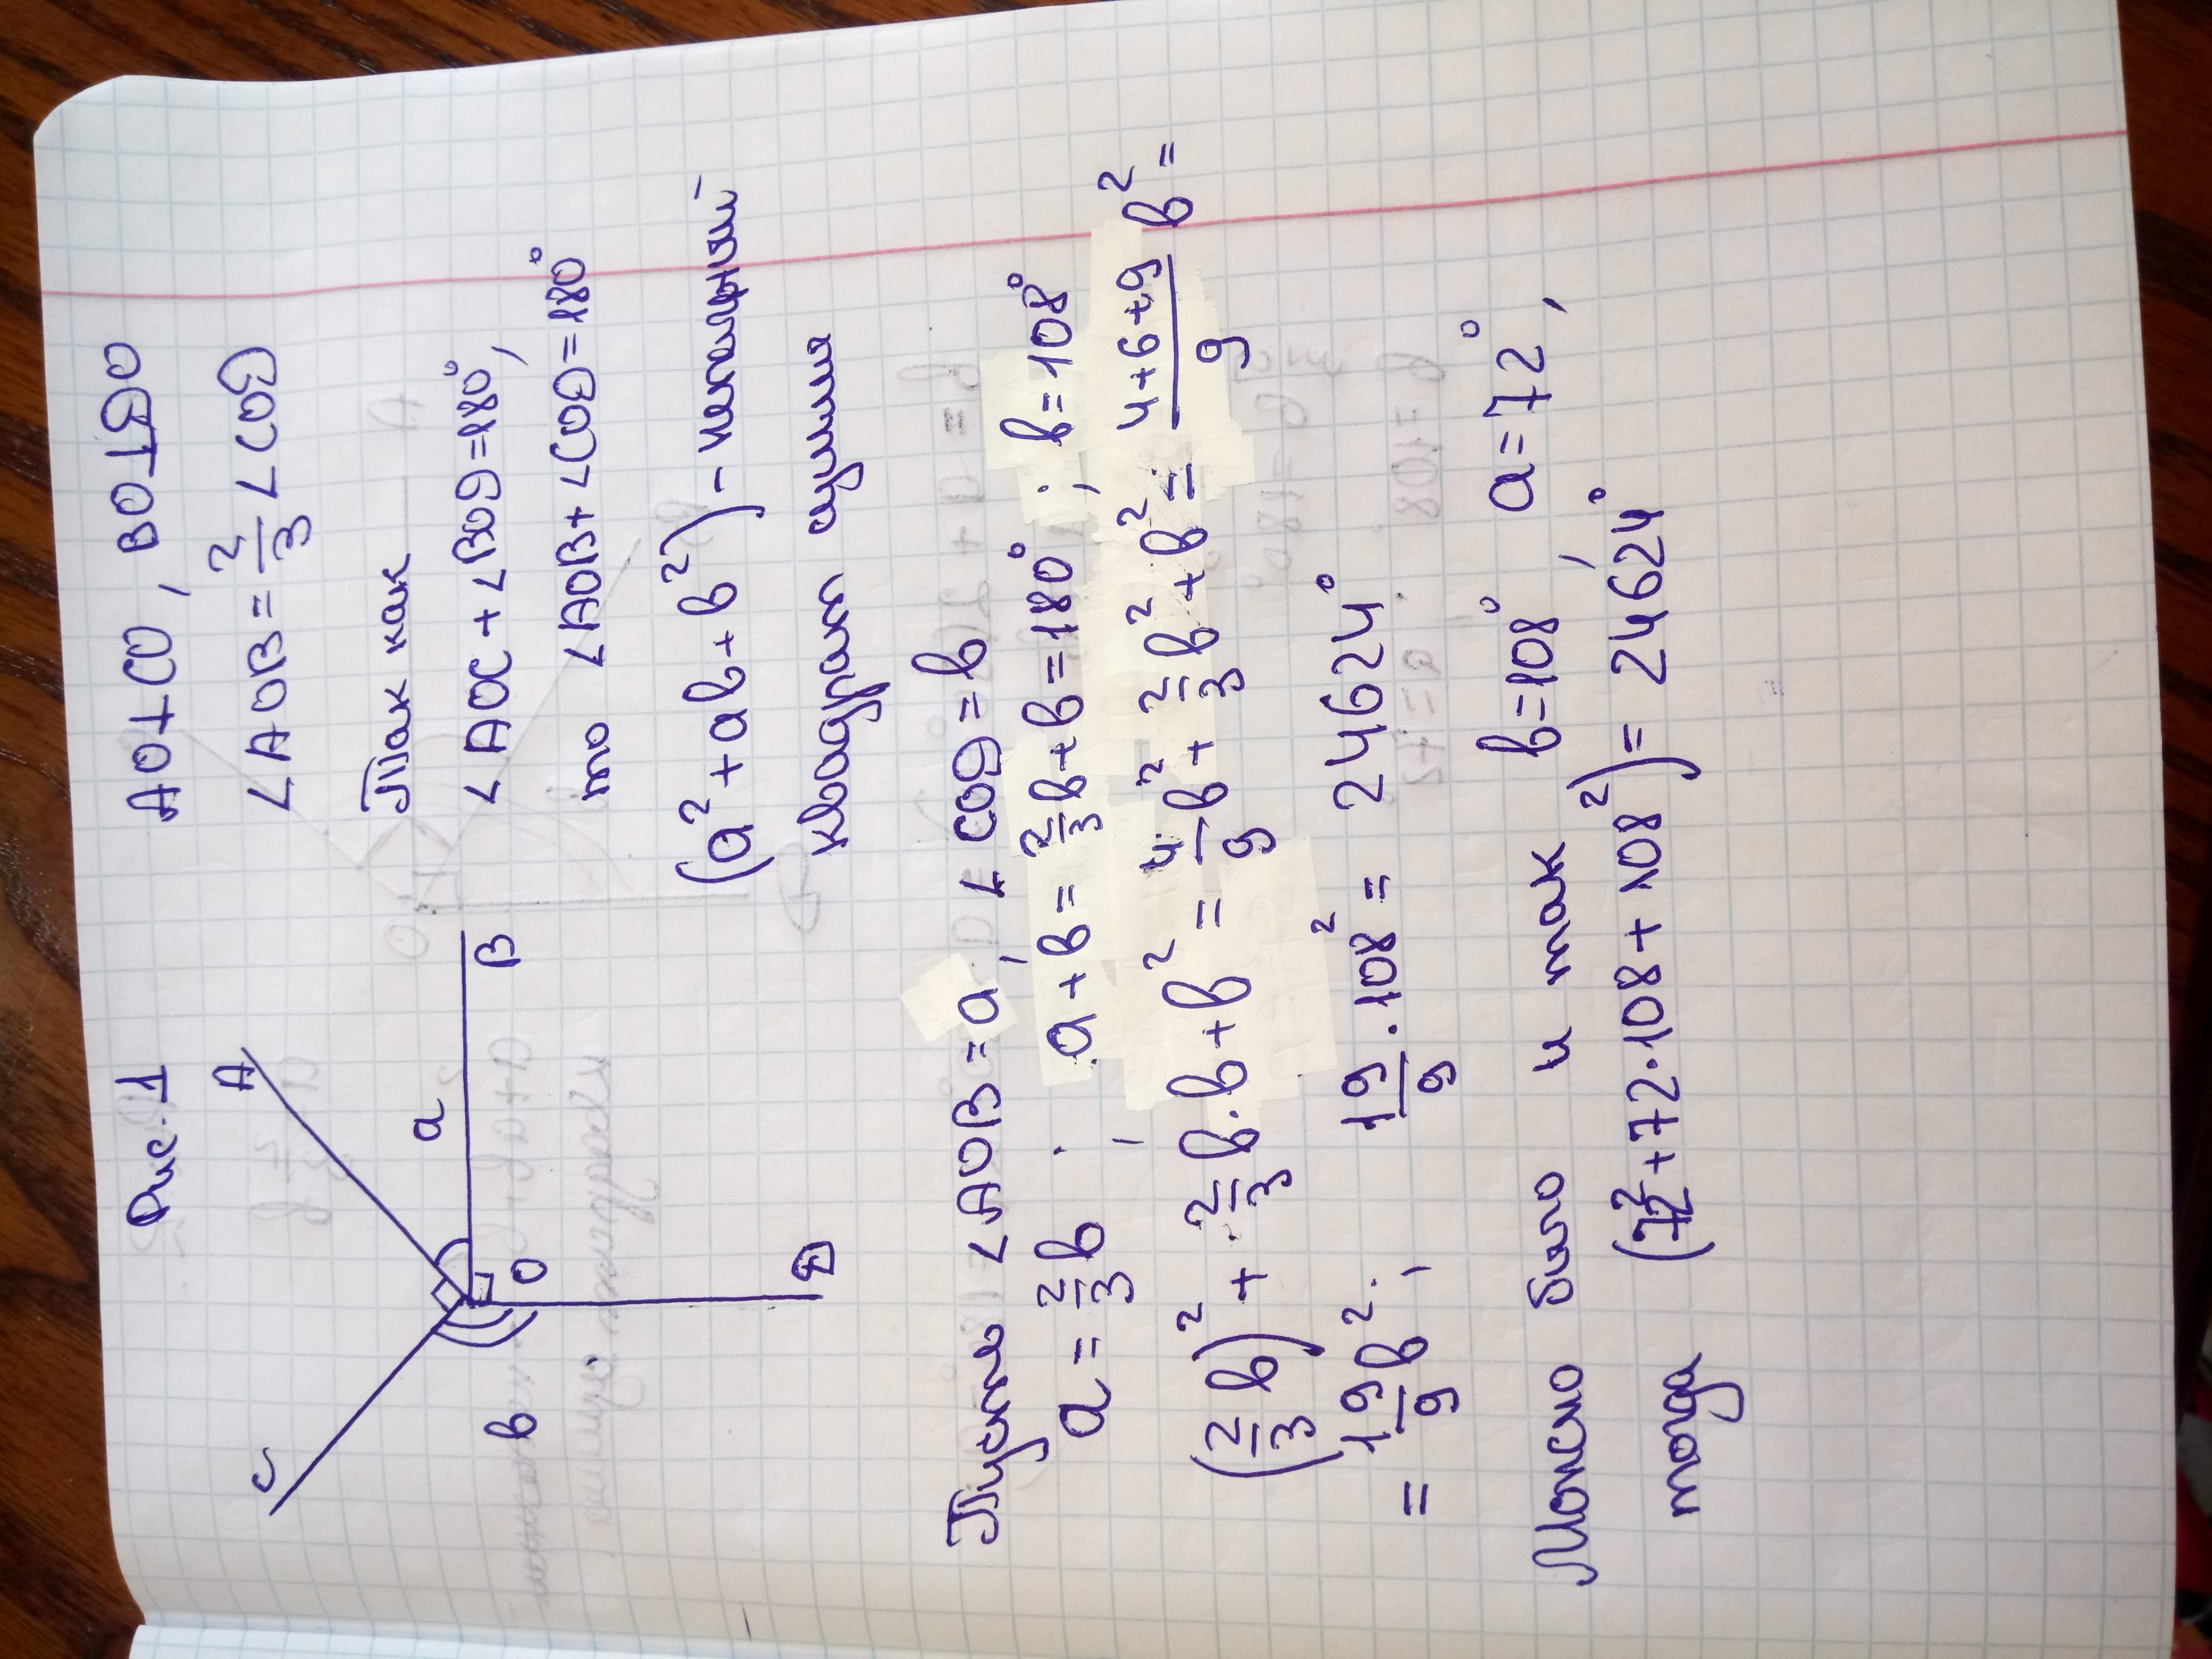 Рис. 1
AO⊥CO, BO⊥ДO
∠AOB = 2/3 ∠COД
Так как
∠AOC + ∠BOД = 180°,
то ∠AOB + ∠COД = 180°
(a² + ab + b²) – неполный
квадрат суммы
A
C
a
B
O
b
Д
Пусть ∠AOB = a, ∠COД = b
a = 2/3 b ; a + b = 2/3 b + b = 180° ; b = 108°
(2/3 b)² + 2/3 b · b + b² = 4/9 b² + 2/3 b² + b² = (4+6+9)/9 b² =
= 19/9 b² ; 19/9 · 108² = 24624°
Можно было и так b = 108°, a = 72°,
тогда (72² + 72·108 + 108²) = 24624°